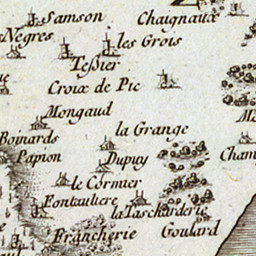 Samson
Chaignaux
Negres
les Grois
Teßier
Croix de Pic
Mongaud
la Grange
Boinards
Papon
Dupuy
le Cormier
Fontauliere
la Tascharderie
Francherie
Goulard